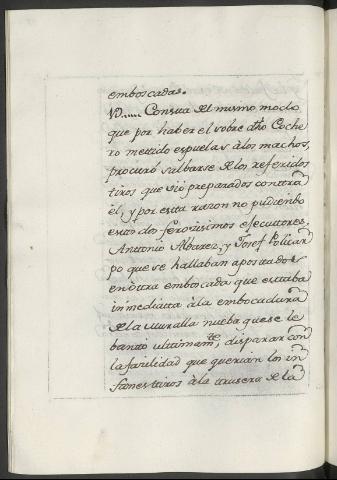 emboscadas.
VD..... Consta del mismo modo
que por haber el sobre dho Coche
ro mettido espuelas à los machos,
procuró salbarse de los referidos
tiros que vió preparados conttra
èl, y por estta razon no pudiendo
esttos dos ferosissimos efecuttores,
Anttonio Albarez, y Josef Policar
po que se hallaban aposttados
en òttra emboscada que esttaba
inmediatta à la embocadura
de la muralla nueba que se le
bantó ulttimamte, disparar con
la fasilidad que querian los in
fames tiros à la trasera de la